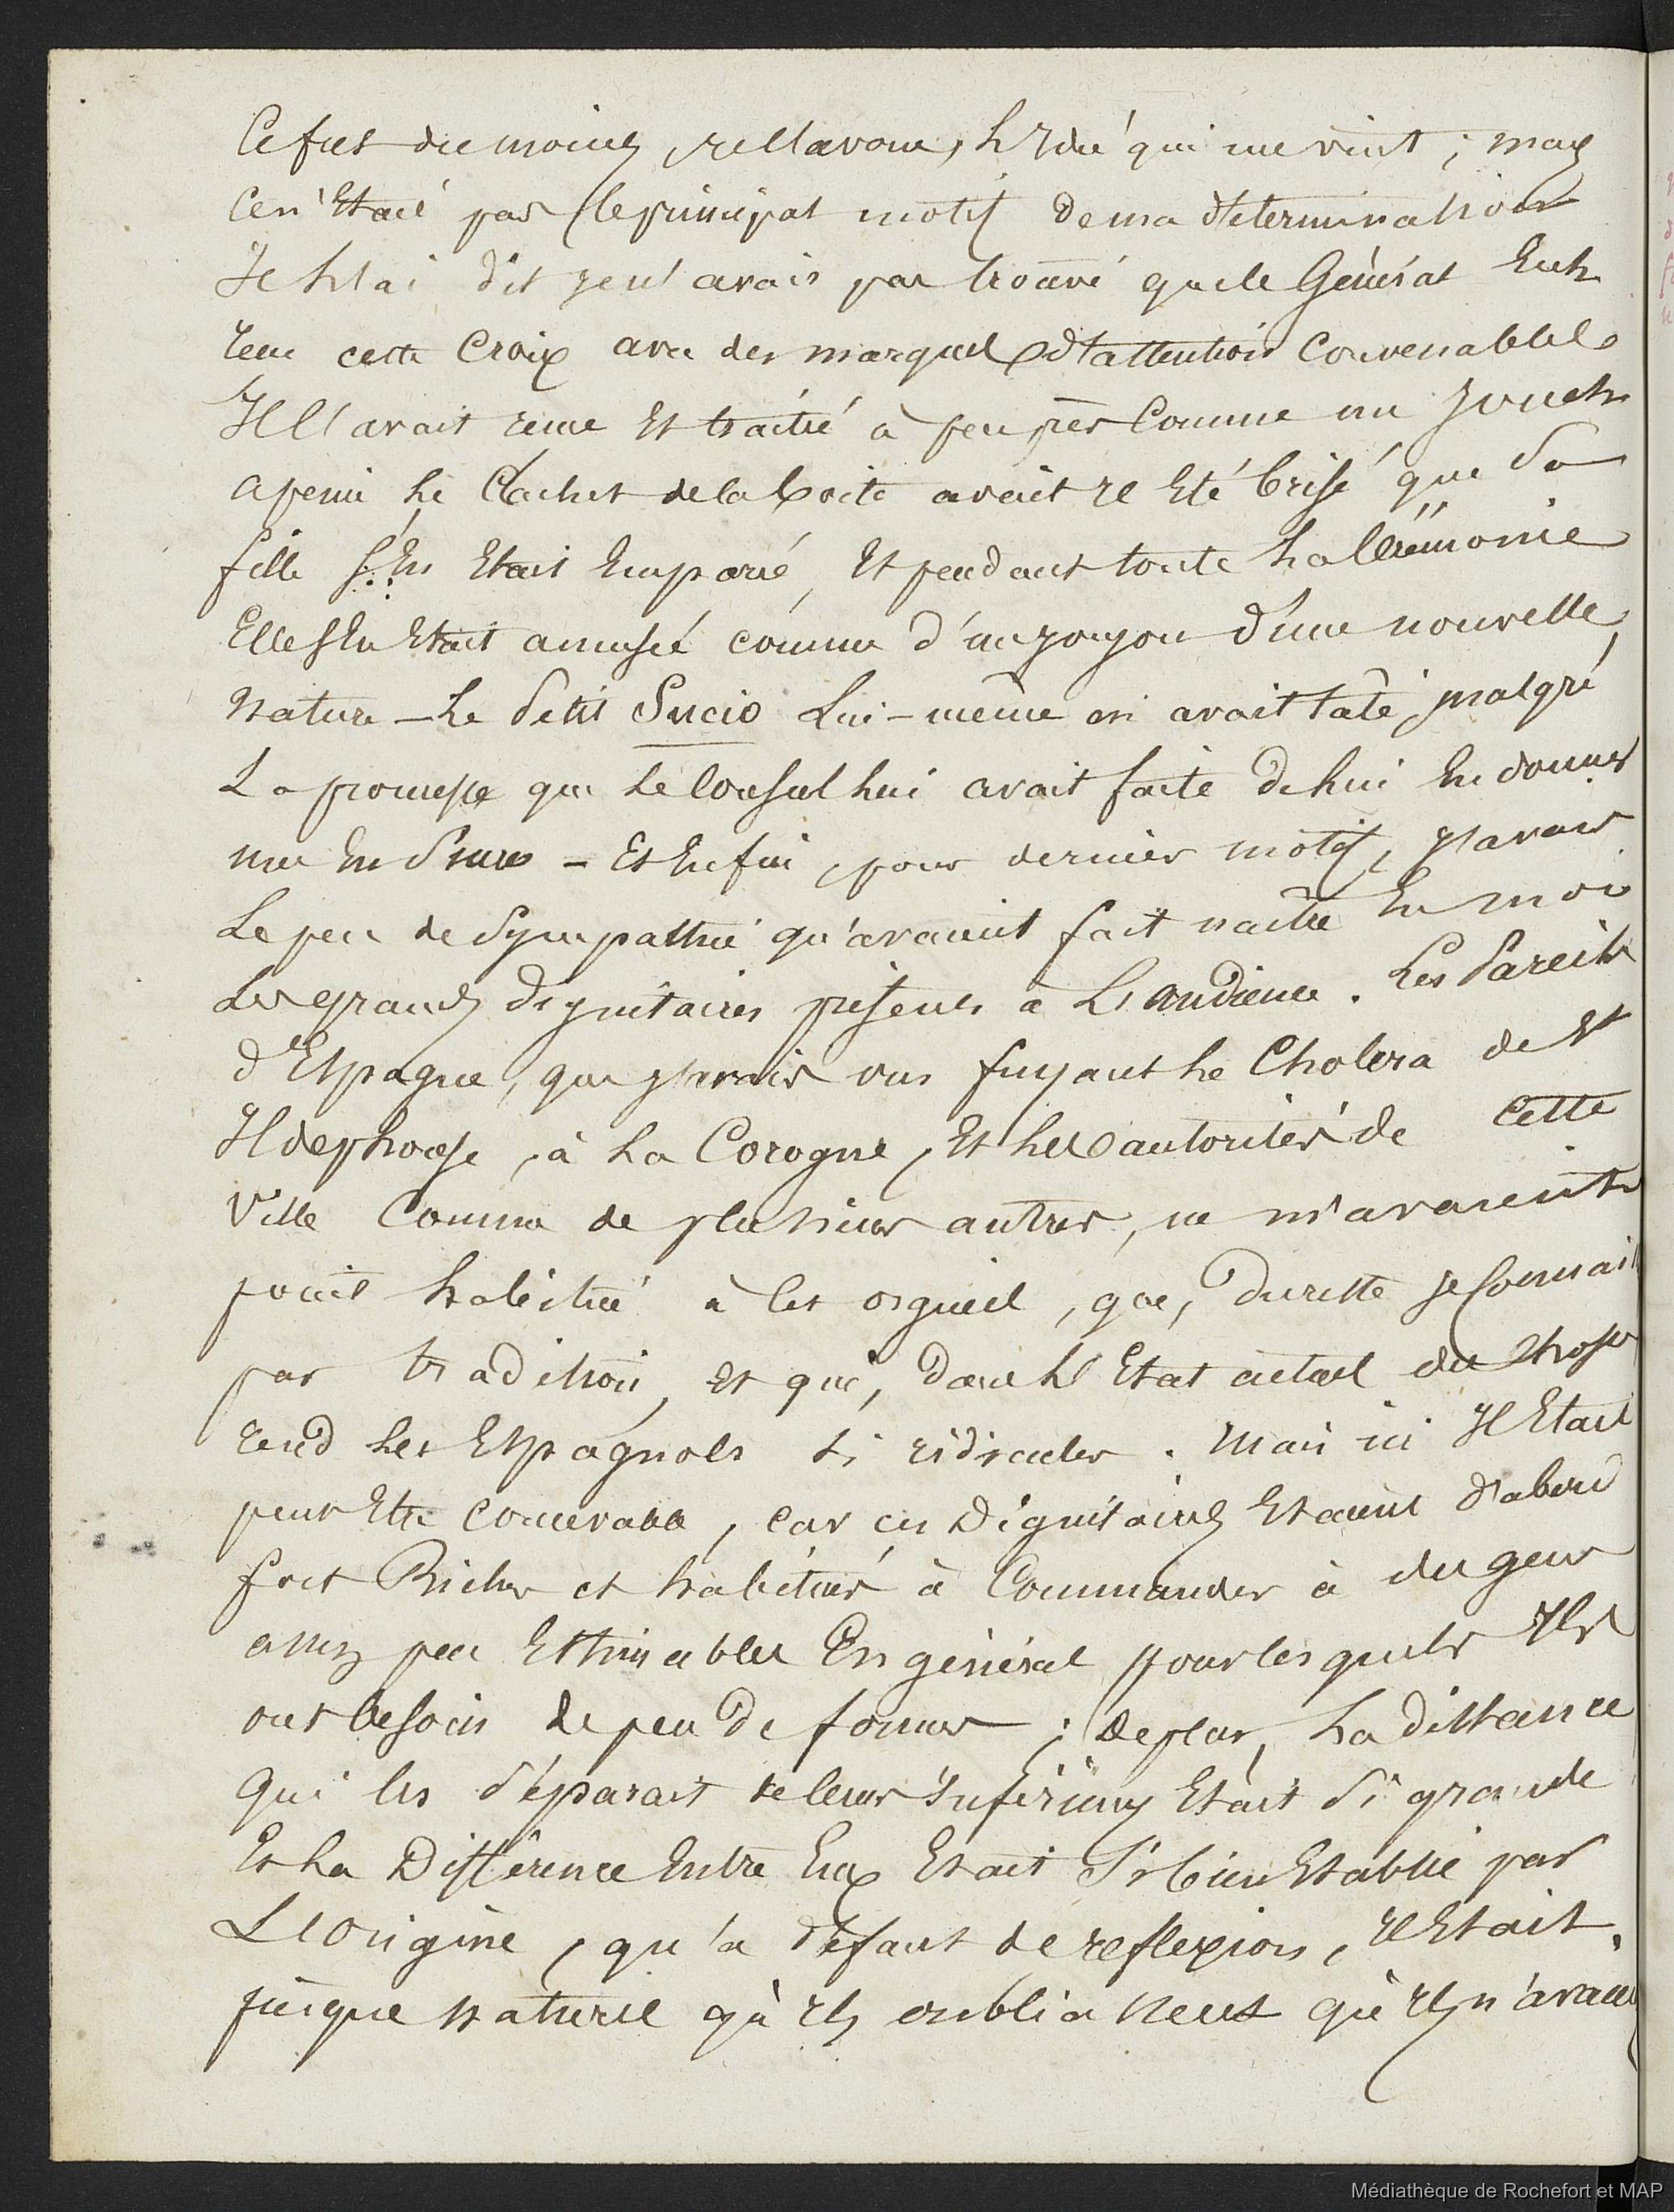 Ce fut du moins, je l'avoue, l'idée qui me vint ; mais
Ce n'était pas le principal motif de ma détermination
Je l'ai dit je n'avais pas trouvé que le Général eut
reçu cette Croix avec des marques d'attention convenables
Il l'avait reçue et traitée à peu près comme un
à peine le Cachet de la boite avait il été brisé que sa
fille s'en était emparé, et pendant toute la Cérémonie
Elle s'en était amusée comme d'un joujou d'une nouvelle
nature – le petit Sucio Lui-même en avait tâté, malgré
La promesse que le Consul lui avait faite de lui en donner
une en sucre – Et enfin, pour dernier motif, j'avais
Le peu de sympathie qu'avaient fait naitre en moi
Les grands dignitaires présents à L'audience. Les Pareils
d'Espagne, que j'avais vus fuyant le Cholera de St
Ildephonse, à la Corogne, Et les autorités de cette
Ville Comme de plusieurs autres, ne m'avaient
point habitué à cet orgueil, que, du reste je connais
par tradition, et qui, dans l'Etat actuel des choses
rend les Espagnols si ridicules. Mais ici Il Etait
peut Etre concevable, car ces Dignitaires Etaient d'abord
fort Riches et habitués à Commander à des gens
assez peu Estimables En général pour lesquels Ils
ont besoin de peu de formes ; de plus, La distance
Qui les séparait de leurs Inférieurs Etait si grande
Et la Différence Entre Eux Etait si bien Etablie par
L'Origine, qu'à défaut de reflexion, il Etait
presque naturel qu'ils oubliassent qu'ils n'avaient